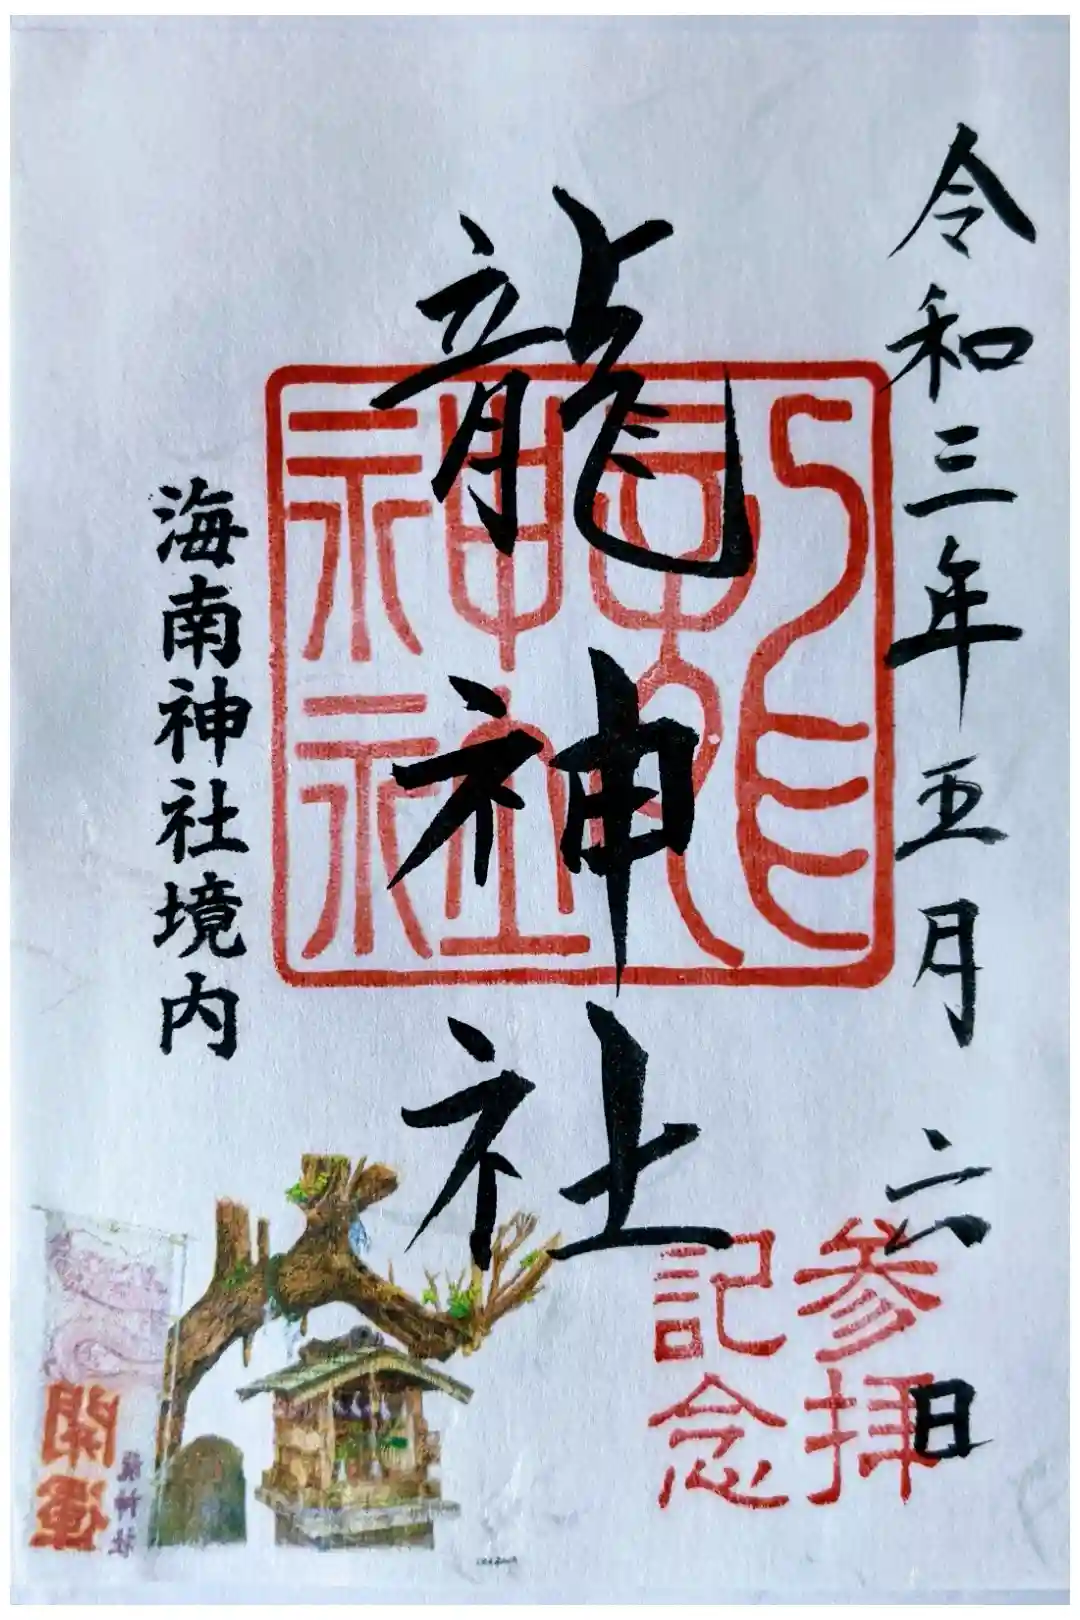 令和三年五月六日
龍神社
龍神社
参拝
記念
海南神社境内
開運
龍神社